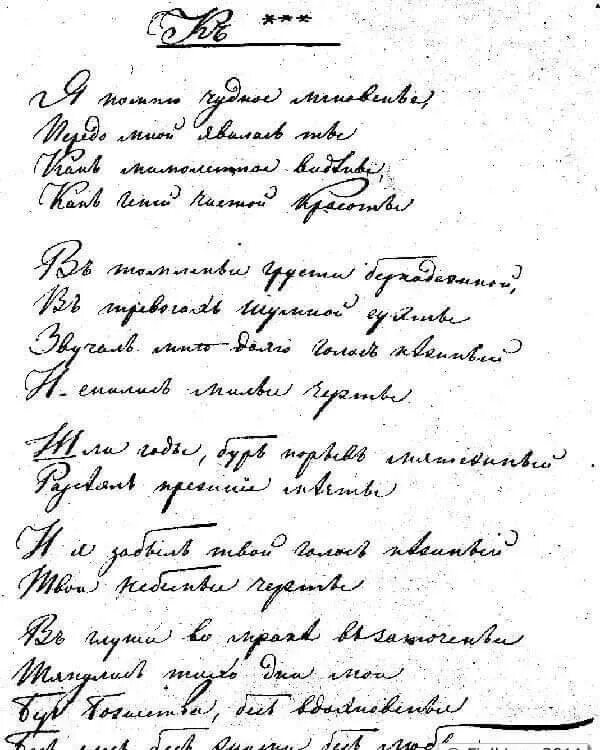 Къ ***
Я помню чудное мгновенье,
Передо мной явилась ты
Какъ мимолетное видѣнье,
Какъ геній чистой красоты
Въ томленьи грусти безнадежной,
Въ тревогахъ шумной суеты
Звучалъ мнѣ долго голосъ нѣжный
И снились милыя черты
Шли годы, бурь порывъ мятежный
Разсѣялъ прежнія мечты
И я забылъ твой голосъ нѣжный
Твои небесныя черты
Въ глуши во мракѣ заточенья
Тянулись тихо дни мои
Безъ божества, безъ вдохновенья
Безъ слезъ безъ жизни безъ